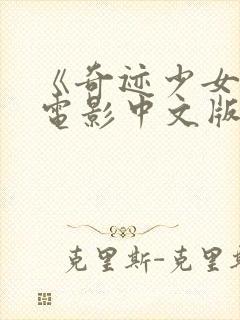 《奇迹少女
电影中文版
克里斯-克里斯